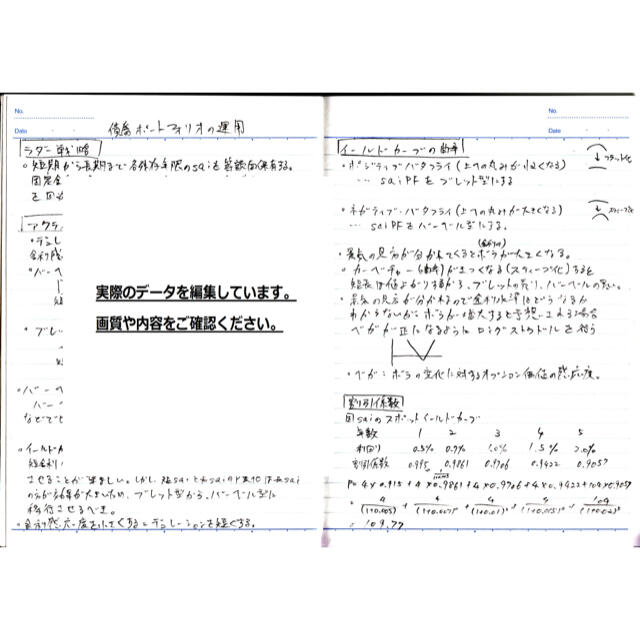 No.
Date
債券ポートフォリオの運用
ラダー戦略
・短期から長期まで各残存年限のsaiを等額面保有する。
を回
アクテ
・デュレ
金利感
・バーベ
・ブレッ
・バーベ
バーベ
などでじ
・イールドカ
短金利
させることが望ましい。しかし
の方が効率が大きいため、ブレット型から、バーベル型に
移行させるべき。
・金利感応度を小さくする=デュレーションを短くする。
実際のデータを編集しています。
画質や内容をご確認ください。
No.
Date
イールドカーブの曲率
・ポジティブバタフライ(上への丸みが小さくなる)
… saiPFをブレット型にする
フラット化
・ネガティブ・バタフライ(上への丸みが大きくなる)
… saiPFをバーベル型にする。
スティープ化
(金利の)
・景気の見方が分かれてくるとボラが大きくなる。
・カーベチャー(曲率)がきつくなる(スティープ化)すると
ブレットの売り、バーベルの買い。
・景気の見方が分かれるので金利水準はどうなるか
わからないがボラが増大すると予想 場合
ベガが正になるようにロングストラドルを行う
・ベガ:ボラの変化に対するオプション価値の感応度。
割引係数
国saiのスポットイールドカーブ
年数 1 2 3 4 5
利回り 0.5% 0.7% 1.0% 1.5% 2.0%
割引係数 0.995 0.9861 0.9706 0.9422 0.9057
P=4×0.995+4×0.9861+4×0.9706+4×0.9422+104×0.9057
= 4/(1+0.005) + 4/(1+0.007)² + 4/(1+0.01)³ + 4/(1+0.015)⁴ + 104/(1+0.02)⁵
= 109.77